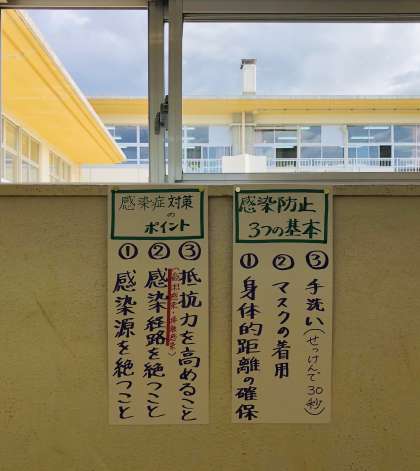 感染症対策
の
ポイント
①感染源を絶つこと
②感染経路を絶つこと
③抵抗力を高めること
感染防止
3つの基本
①身体的距離の確保
②マスクの着用
③手洗い(せっけんで30秒)